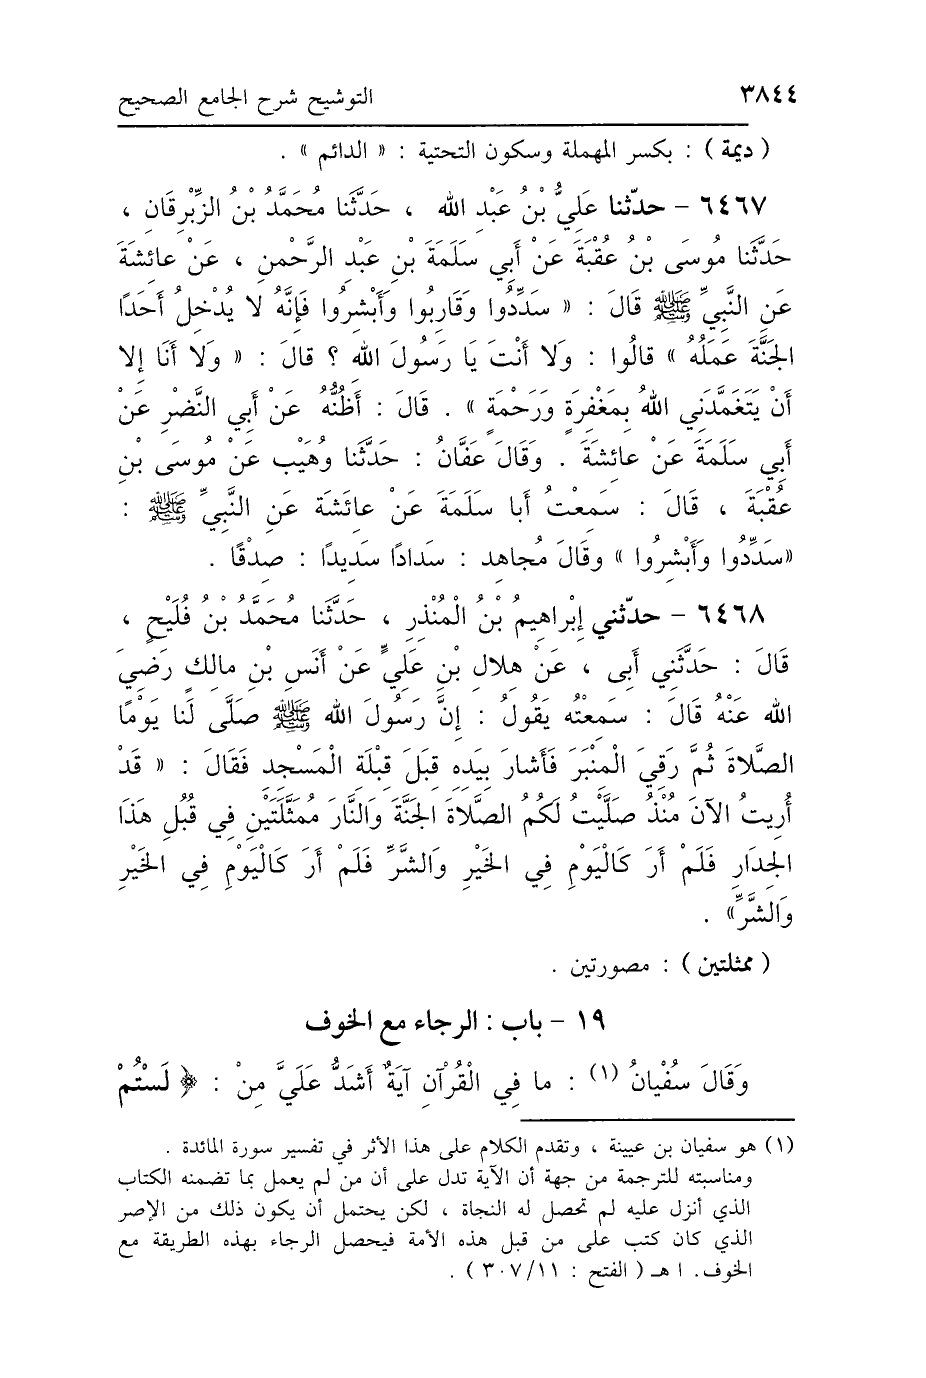 ٣٨٤٤ التوشيح شرح الجامع الصحيح
( ديمة ) : بكسر المهملة وسكون التحتية : « الدائم » .
٦٤٦٧ – حدّثنا عَلِيُّ بْنُ عَبْدِ الله ، حَدَّثَنا مُحَمَّدُ بْنُ الزِّبْرِقَانِ ،
حَدَّثَنا مُوسَى بْنُ عُقْبَةَ عَنْ أَبِي سَلَمَةَ بْنِ عَبْدِ الرَّحْمنِ ، عَنْ عائشَةَ
عَنِ النَّبِيِّ ﷺ قَالَ : « سَدِّدُوا وَقَارِبُوا وَأَبْشِرُوا فَإِنَّهُ لا يُدْخِلُ أَحَدًا
الجَنَّةَ عَمَلُهُ » قالُوا : وَلا أَنْتَ يَا رَسُولَ الله ؟ قالَ : « وَلا أَنَا إلا
أَنْ يَتَغَمَّدَنِي اللهُ بِمَغْفِرَةٍ وَرَحْمَةٍ » . قَالَ : أَظُنُّهُ عَنْ أَبي النَّضْرِ عَنْ
أَبِي سَلَمَةَ عَنْ عائِشَةَ . وَقَالَ عَفَّانُ : حَدَّثَنا وُهَيْب عَنْ مُوسَى بْنِ
عُقْبَةَ ، قَالَ : سَمِعْتُ أَبا سَلَمَةَ عَنْ عائِشَة عَنِ النَّبِيِّ ﷺ :
«سَدِّدُوا وَأَبْشِرُوا » وقَالَ مُجاهد : سَدادًا سَدِيدًا : صِدْقًا .
٦٤٦٨ – حدّثني إِبْراهِيمُ بْنُ الْمُنْذِرِ ، حَدَّثَنا مُحَمَّدُ بْنُ فُلَيْحٍ ،
قَالَ : حَدَّثَنِي أَبى ، عَنْ هلال بْنِ عَلِيٍّ عَنْ أَنَسِ بْنِ مالكٍ رَضِيَ
الله عَنْهُ قَالَ : سَمِعْته يَقُولُ : إِنَّ رَسُولَ الله ﷺ صَلَّى لَنا يَوْمًا
الصَّلاةَ ثُمَّ رَقِيَ الْمِنْبَرَ فَأَشارَ بِيَدِهِ قِبَلَ قِبْلَةِ الْمَسْجِدِ فَقَالَ : « قَدْ
أُرِيتُ الآنَ مُنْذُ صَلَّيْتُ لَكُمُ الصَّلاةَ الجَنَّةَ وَالنَّارَ مُمَثَّلَتَيْنِ فِي قُبُلِ هَذَا
الجِدَارِ فَلَمْ أَرَ كَالْيَوْمِ فِي الخَيْرِ وَالشَّرِّ فَلَمْ أَرَ كَالْيَوْمِ فِي الخَيْرِ
وَالشَّرِّ» .
( ممثلتين ) : مصورتين .
١٩ – باب : الرجاء مع الخوف
وَقَالَ سُفْيانُ (١) : ما فِي الْقُرْآنِ آيَةٌ أَشَدُّ عَلَيَّ مِنْ : ﴿ لَسْتُمْ
(١) هو سفيان بن عيينة ، وتقدم الكلام على هذا الأثر في تفسير سورة المائدة .
ومناسبته للترجمة من جهة أن الآية تدل على أن من لم يعمل بما تضمنه الكتاب
الذي أنزل عليه لم تحصل له النجاة ، لكن يحتمل أن يكون ذلك من الإصر
الذي كان كتب على من قبل هذه الأمة فيحصل الرجاء بهذه الطريقة مع
الخوف. ا هـ ( الفتح : ٣٠٧/١١ ) .